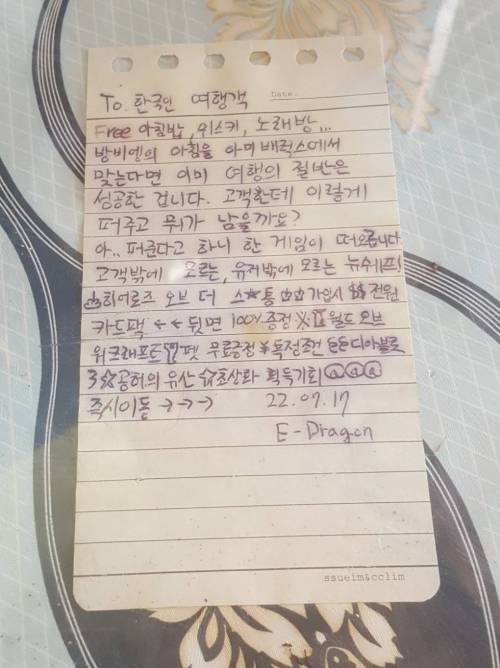 Date.
To. 한국인 여행객
Free 아침밥, 위스키, 노래방...
방비엥의 아침을 아미 배럭스에서
맞는다면 이미 여행의 절반은
성공한 겁니다. 고객한테 이렇게
퍼주고 뭐가 남을까요?
아.. 퍼준다고 하니 한 게임이 떠오릅니다
고객밖에 모르는, 유저밖에 모르는 뉴이스트!
스히어로즈 오브 더 스★톰 가입시 전원
카드팩 ←← 뒷면 100% 증정 ※ 월드 오브
워크래프트 펫 무료증정 ¥ 특정조건 디아블로
3 ☆공허의 유산 ☆초상화 획득기회
즉시이동 →→→ 22.07.17
E-Dragon
ssueim&cclim